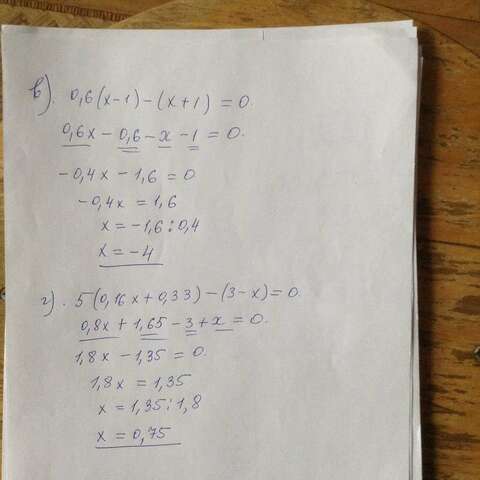 в). 0,6(x-1)-(x+1)=0.
0,6x-0,6-x-1=0.
-0,4x-1,6=0
-0,4x=1,6
x=-1,6:0,4
x=-4
г). 5(0,16x+0,33)-(3-x)=0.
0,8x+1,65-3+x=0.
1,8x-1,35=0.
1,8x=1,35
x=1,35:1,8
x=0,75